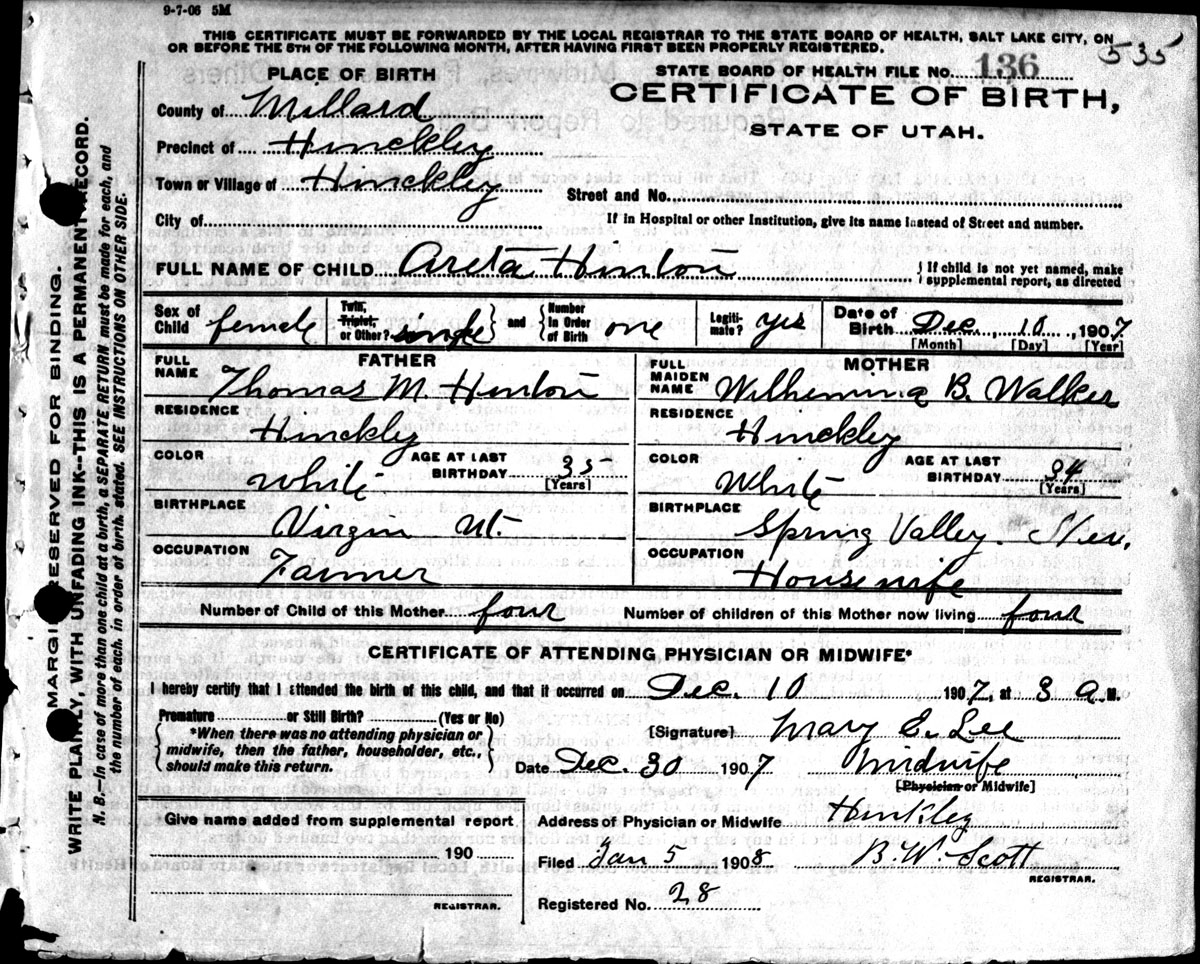 9-7-06 5M
THIS CERTIFICATE MUST BE FORWARDED BY THE LOCAL REGISTRAR TO THE STATE BOARD OF HEALTH, SALT LAKE CITY, ON
OR BEFORE THE 5TH OF THE FOLLOWING MONTH, AFTER HAVING FIRST BEEN PROPERLY REGISTERED.
535
PLACE OF BIRTH
STATE BOARD OF HEALTH FILE NO. 136
CERTIFICATE OF BIRTH,
STATE OF UTAH.
County of Millard
Precinct of Hinckley
Town or Village of Hinckley
Street and No.
City of
If in Hospital or other Institution, give its name instead of Street and number.
FULL NAME OF CHILD Areta Hinton
If child is not yet named, make
supplemental report, as directed
Sex of Child female
Twin, Triplet, or Other? single
and Number in Order of Birth one
Legitimate? yes
Date of Birth Dec. 10, 1907
[Month] [Day] [Year]
FATHER
FULL NAME Thomas M. Hinton
RESIDENCE Hinckley
COLOR White
AGE AT LAST BIRTHDAY 35 [Years]
BIRTHPLACE Virgin Ut.
OCCUPATION Farmer
MOTHER
FULL MAIDEN NAME Wilhemina B. Walker
RESIDENCE Hinckley
COLOR White
AGE AT LAST BIRTHDAY 34 [Years]
BIRTHPLACE Spring Valley.
OCCUPATION Housewife
Number of Child of this Mother four
Number of children of this Mother now living four
CERTIFICATE OF ATTENDING PHYSICIAN OR MIDWIFE*
I hereby certify that I attended the birth of this child, and that it occurred on Dec. 10 1907, at 3 a. M.
Premature or Still Birth? (Yes or No)
*When there was no attending physician or
midwife, then the father, householder, etc.,
should make this return.
[Signature] Mary E. Lee
Date Dec. 30 1907 Midwife
[Physician or Midwife]
Give name added from supplemental report
190
REGISTRAR.
Address of Physician or Midwife Hinkley
Filed Jan 5 1908 B. W. Scott
REGISTRAR.
Registered No. 28
MARGIN RESERVED FOR BINDING.
WRITE PLAINLY, WITH UNFADING INK--THIS IS A PERMANENT RECORD.
N. B.—In case of more than one child at a birth, a SEPARATE RETURN must be made for each, and
the number of each, in order of birth, stated. SEE INSTRUCTIONS ON OTHER SIDE.